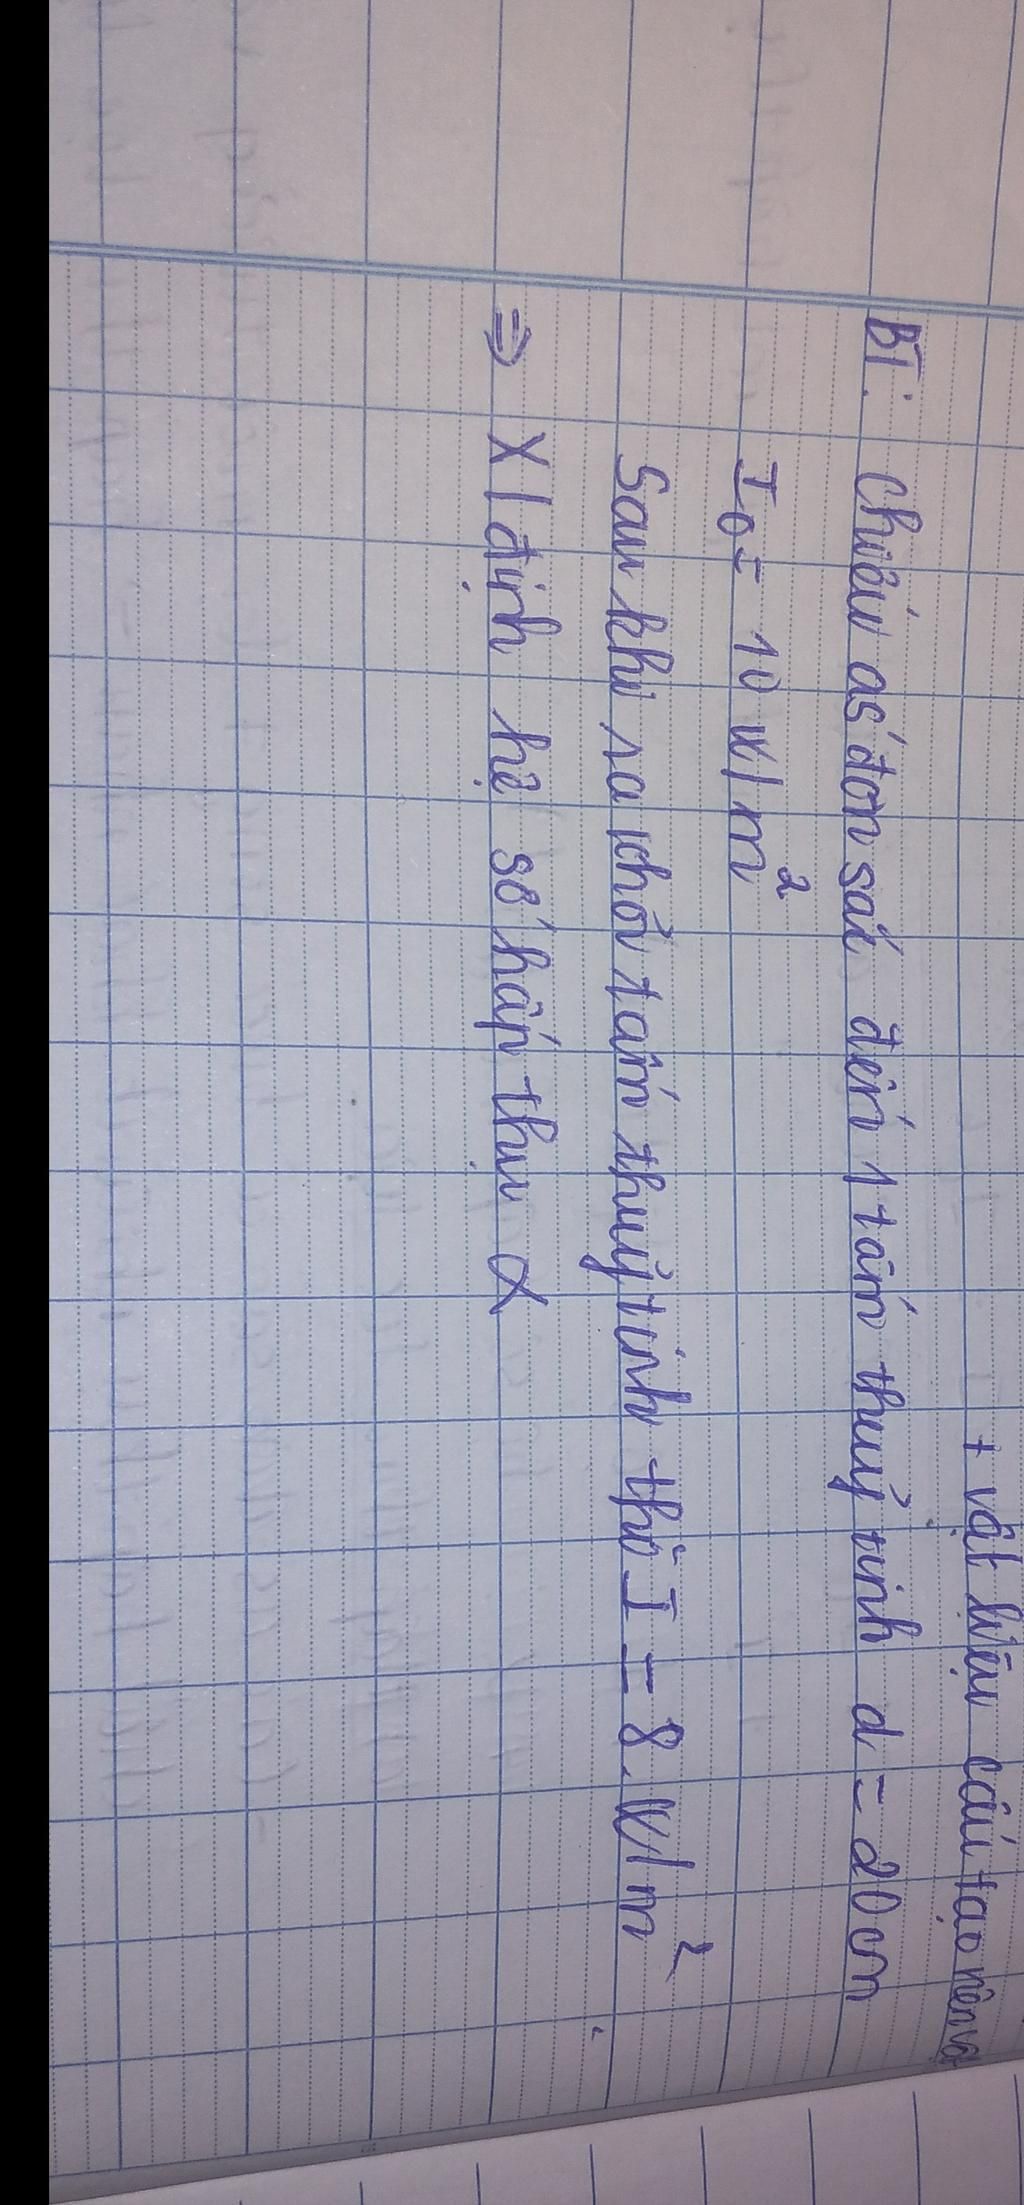 + vật liệu cấu tạo nên vật
BT: Chiếu as đơn sắc đến 1 tấm thuỷ tinh d = 20 cm
I₀ = 10 W/m²
Sau khi ra khỏi tấm thuỷ tinh thì I = 8 W/m²
=> X/định hệ số hấp thụ α